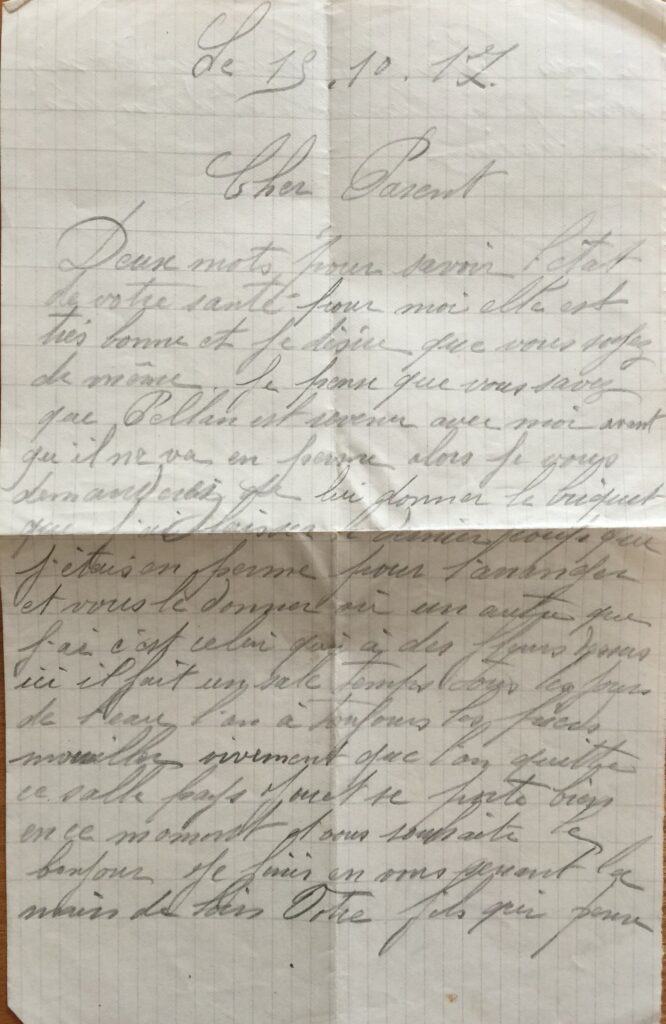 Le 19.10.17.
Cher Parent
Deux mots pour savoir l'état
de votre santé pour moi elle est
très bonne et je désire que vous soyez
de même. Je pense que vous savez
que est revenu avec moi avant
qu'il ne va en perme alors je vous
de lui donner le briquet
que j'ai laisser le dernier coup que
j'étais en perme pour l'arranger
et vous le donner où un autre que
j'ai c'est celui qui à des fleurs dessus
ici il fait un sale temps tous les jours
de l'eau l'on à toujours les pieds
mouiller vivement que l'on quitte
ce salle pays se porte bien
en ce moment et vous souhaite le
bonjour Je finis en vous serrant la
main de loin Votre fils qui pense